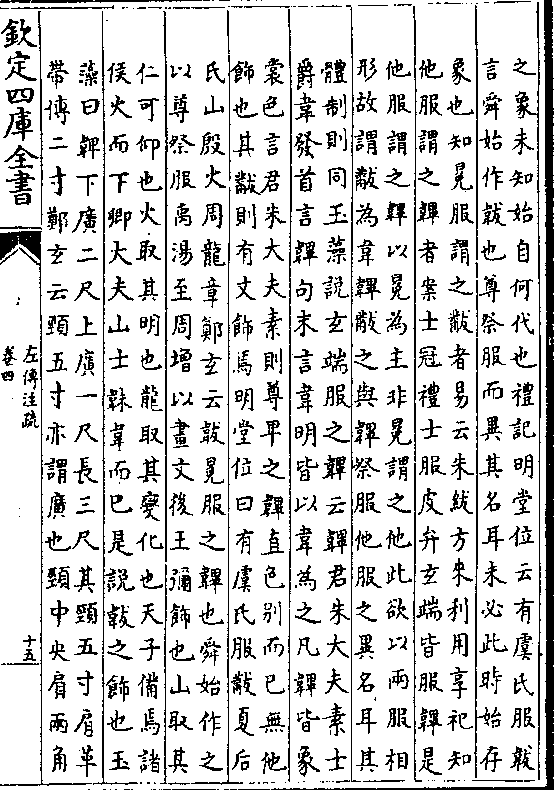 之象未知始自何代也禮記明堂位云有虞氏服韍
言舜始作韍也尊祭服而異其名耳未必此時始存
象也知冕服謂之黻者易云朱紱方來利用享祀知
他服謂之韠者案士冠禮士服皮弁玄端皆服韠是
他服謂之韠以冕為主非冕謂之他此欲以兩服相
形故謂黻為韋韠黻之與韠祭服他服之異名耳其
體制則同玉藻說玄端服之韠云韠君朱大夫素士
爵韋發首言韠句末言韋明皆以韋為之凡韠皆象
裳色言君朱大夫素則尊卑之韠直色別而已無他
飾也其黻則有文飾焉明堂位曰有虞氏服黻夏后
氏山殷火周龍章鄭玄云韍冕服之韠也舜始作之
以尊祭服禹湯至周增以畫文後王彌飾也山取其
仁可仰也火取其明也龍取其變化也天子備焉諸
侯火而下卿大夫山士韎韋而已是說韍之飾也玉
藻曰韠下廣二尺上廣一尺長三尺其頸五寸肩革
帶博二寸鄭玄云頸五寸亦謂廣也頸中央肩兩角
欽定四庫全書
左傳注疏
卷四
十五